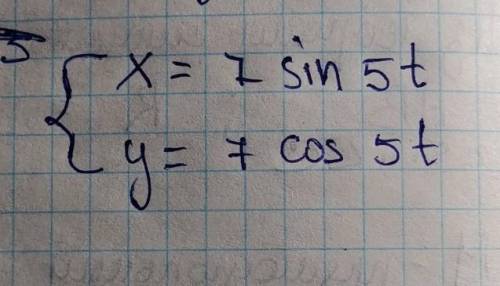 5
x = 7 sin 5t
y = 7 cos 5t